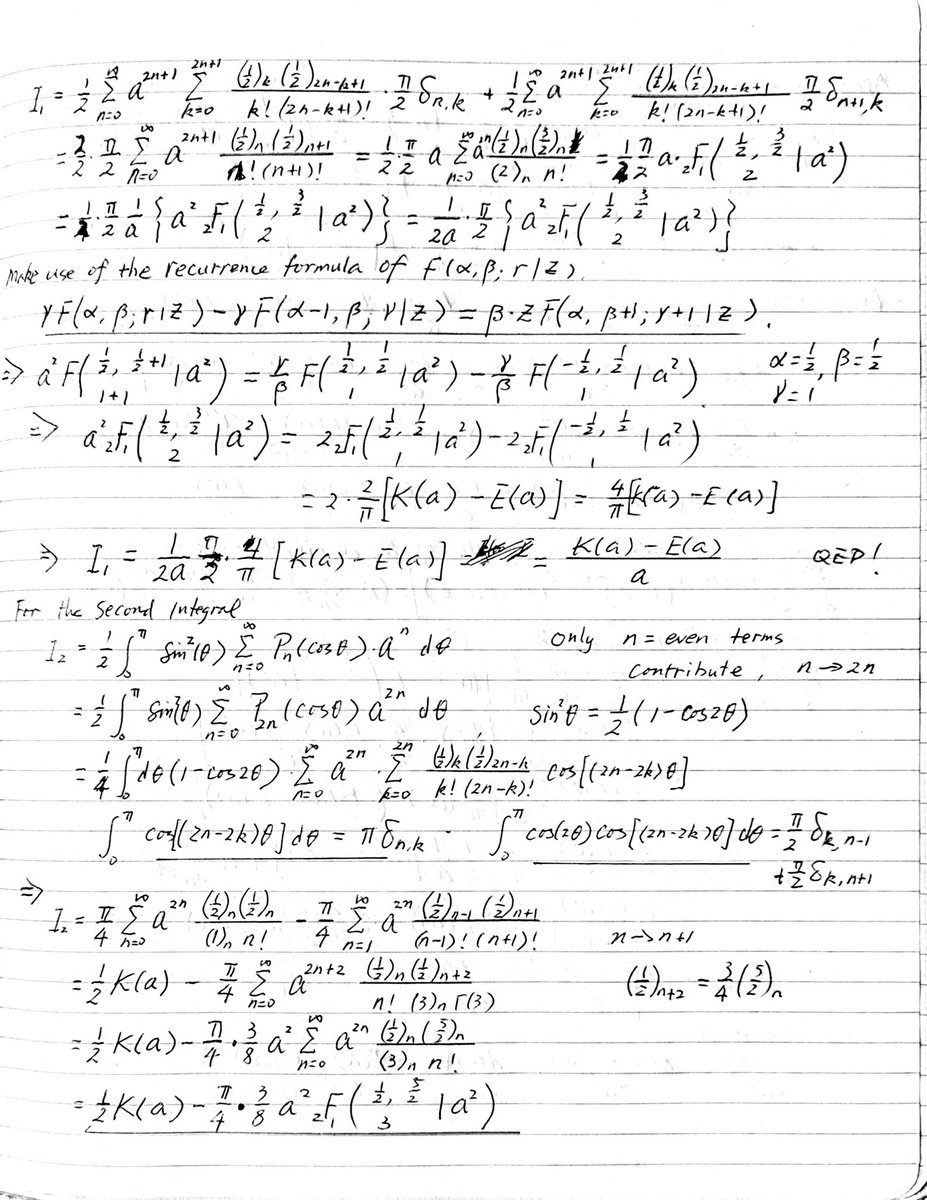 I₁ = ½ Σ_{n=0}^{∞} a^{2n+1} Σ_{k=0}^{2n+1} (½)_k (½)_{2n-k+1} / k! (2n-k+1)! · π/2 δ_{n,k} + ½ Σ_{n=0}^{∞} a^{2n+1} Σ_{k=0}^{2n+1} (½)_k (½)_{2n-k+1} / k! (2n-k+1)! π/2 δ_{n+1,k}
= 2/2 · π/2 Σ_{n=0}^{∞} a^{2n+1} (½)_n (½)_{n+1} / n! (n+1)! = ½ · π/2 a Σ_{n=0}^{∞} a^{2n} (½)_n (3/2)_n / (2)_n n! = ½ π/2 a · ₂F₁( ½, 3/2 ; 2 | a²)
= ½ · π/2 1/a { a² ₂F₁( ½, 3/2 ; 2 | a²) } = 1/2a · π/2 { a² ₂F₁( ½, 3/2 ; 2 | a²) }
make use of the recurrence formula of F(α, β; γ | z).
γF(α, β; γ | z) − γF(α−1, β; γ | z) = β·z F(α, β+1; γ+1 | z).
⇒ a² F( ½, ½+1 ; 1+1 | a²) = γ/β F( ½, ½ ; 1 | a²) − γ/β F( −½, ½ ; 1 | a²) α=½, β=½ γ=1
⇒ a² ₂F₁( ½, 3/2 ; 2 | a²) = 2 ₂F₁( ½, ½ ; 1 | a²) − 2 ₂F₁( −½, ½ ; 1 | a²)
= 2 · 2/π [K(a) − E(a)] = 4/π [K(a) − E(a)]
⇒ I₁ = 1/2a π/2 · 4/π [K(a) − E(a)] = K(a) − E(a) / a QED!
For the second integral
I₂ = ½ ∫₀^π sin²(θ) Σ_{n=0}^{∞} P_n(cosθ)·a^n dθ only n = even terms contribute, n → 2n
= ½ ∫₀^π sin²(θ) Σ_{n=0}^{∞} P_{2n}(cosθ) a^{2n} dθ sin²θ = ½(1 − cos2θ)
= ¼ ∫₀^π dθ (1 − cos2θ) · Σ_{n=0}^{∞} a^{2n} · Σ_{k=0}^{2n} (½)_k (½)_{2n-k} / k! (2n-k)! cos[(2n−2k)θ]
∫₀^π cos[(2n−2k)θ] dθ = π δ_{n,k} · ∫₀^π cos(2θ) cos[(2n−2k)θ] dθ = π/2 δ_{k,n−1} + π/2 δ_{k,n+1}
⇒ I₂ = π/4 Σ_{n=0}^{∞} a^{2n} (½)_n (½)_n / (1)_n n! − π/4 Σ_{n=1}^{∞} a^{2n} (½)_{n−1} (½)_{n+1} / (n−1)! (n+1)! n → n+1
= ½ K(a) − π/4 Σ_{n=0}^{∞} a^{2n+2} (½)_n (½)_{n+2} / n! (3)_n Γ(3) (½)_{n+2} = ¾ (5/2)_n
= ½ K(a) − π/4 · 3/8 a² Σ_{n=0}^{∞} a^{2n} (½)_n (5/2)_n / (3)_n n!
= ½ K(a) − π/4 · 3/8 a² ₂F₁( ½, 5/2 ; 3 | a²)